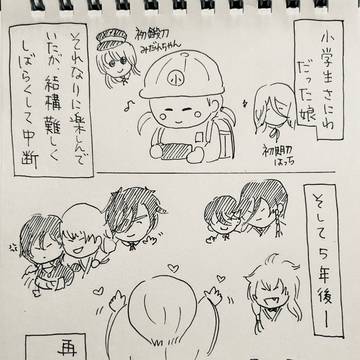 小学生さにわ
だった娘
初期刀
はっち
初鍛刀
みだれちゃん
それなりに楽しんで
いたが結構難しく
しばらくして中断
そして5年後ー
再